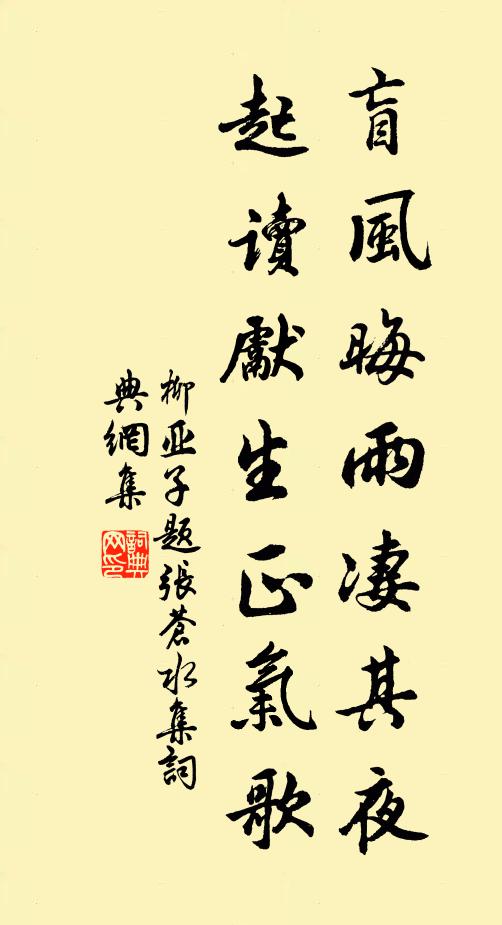 盲風晦雨凄其夜
起讀獻生正氣歌
柳亚子题張蒼水集詞
典網集
詞典
网印